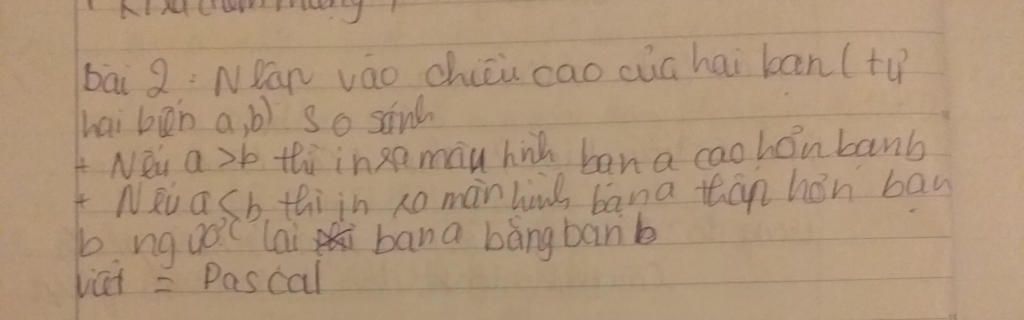 bài 2: Nhập vào chiều cao của hai bạn (từ
hai biến a,b) so sánh
+ Nếu a>b thì in ra màn hình bạn a cao hơn bạn b
+ Nếu a<b thì in ra màn hình bạn a thấp hơn bạn
b ngược lại bạn a bằng bạn b
viết = Pascal